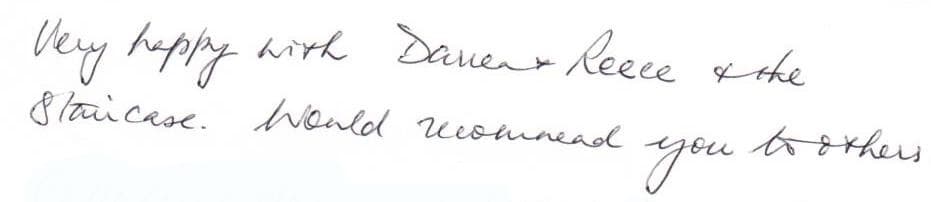 Very happy with Darren + Reece & the
Staircase. Would recommend you to others